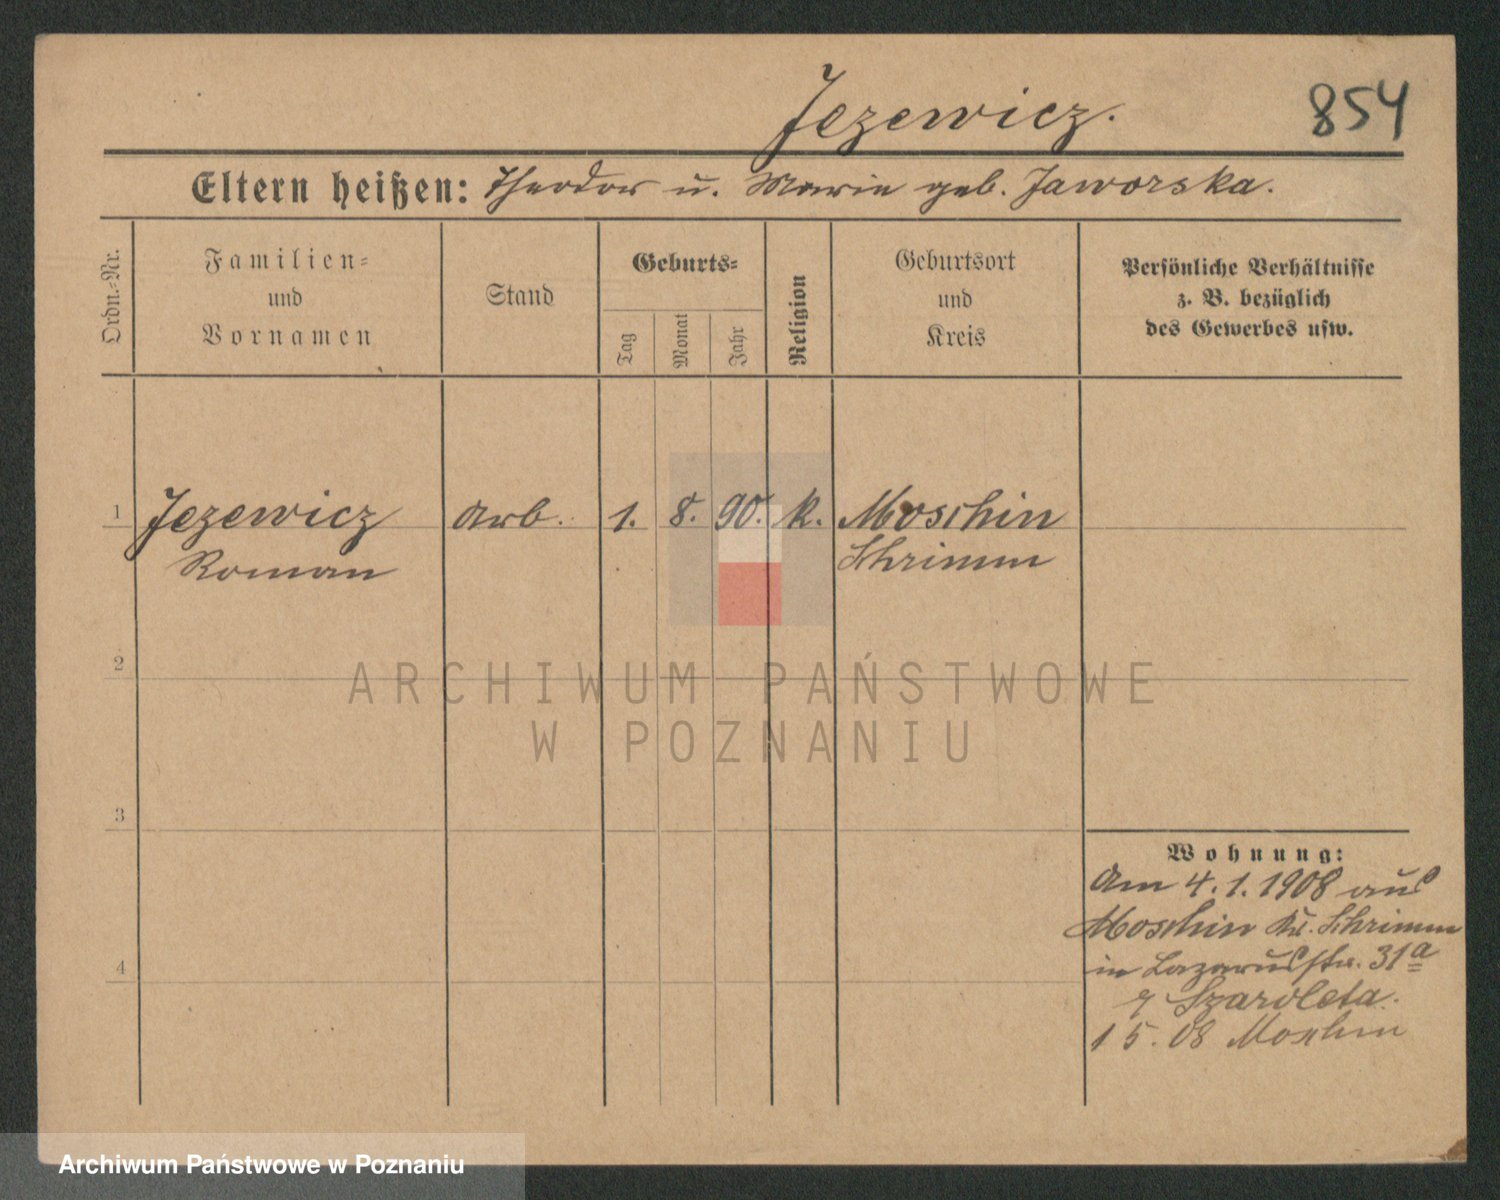 Jezewicz.
854
Eltern heißen: Theodor u. Marie geb. Jaworska.
Ordn.-Nr.
Familien-
und
Vornamen
Stand
Geburts-
Tag
Monat
Jahr
Religion
Geburtsort
und
Kreis
Persönliche Verhältnisse
z. B. bezüglich
des Gewerbes usw.
1 Jezewicz Arb. 1. 8. 90. k. Moschin
Roman Schrimm
2
ARCHIWUM PAŃSTWOWE
W POZNANIU
3
Wohnung:
Am 4.1.1908 aus
Moschin Kr. Schrimm
in Lazarusstr. 31a
4
1 5. 08 Moschin
Archiwum Państwowe w Poznaniu